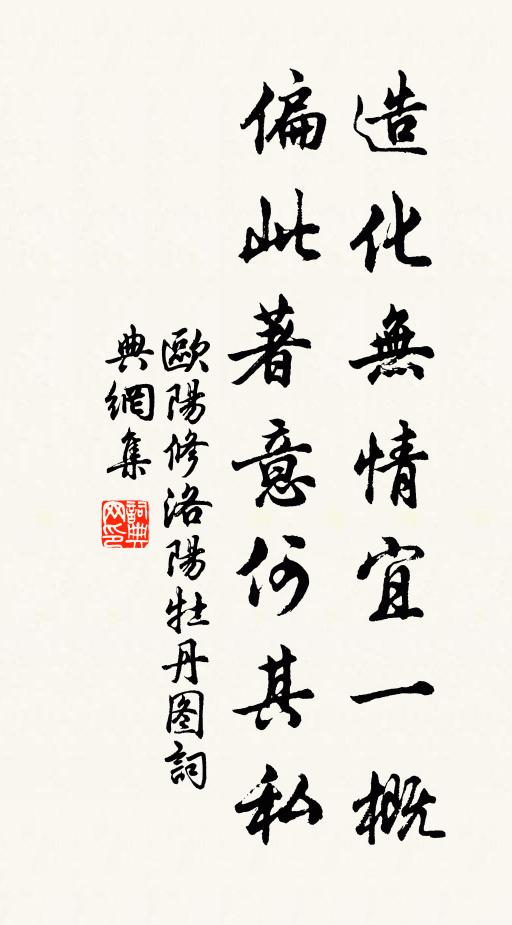 造化無情宜一概
偏此著意何其私
歐陽修洛陽牡丹图詞
典網集
詞典
网印